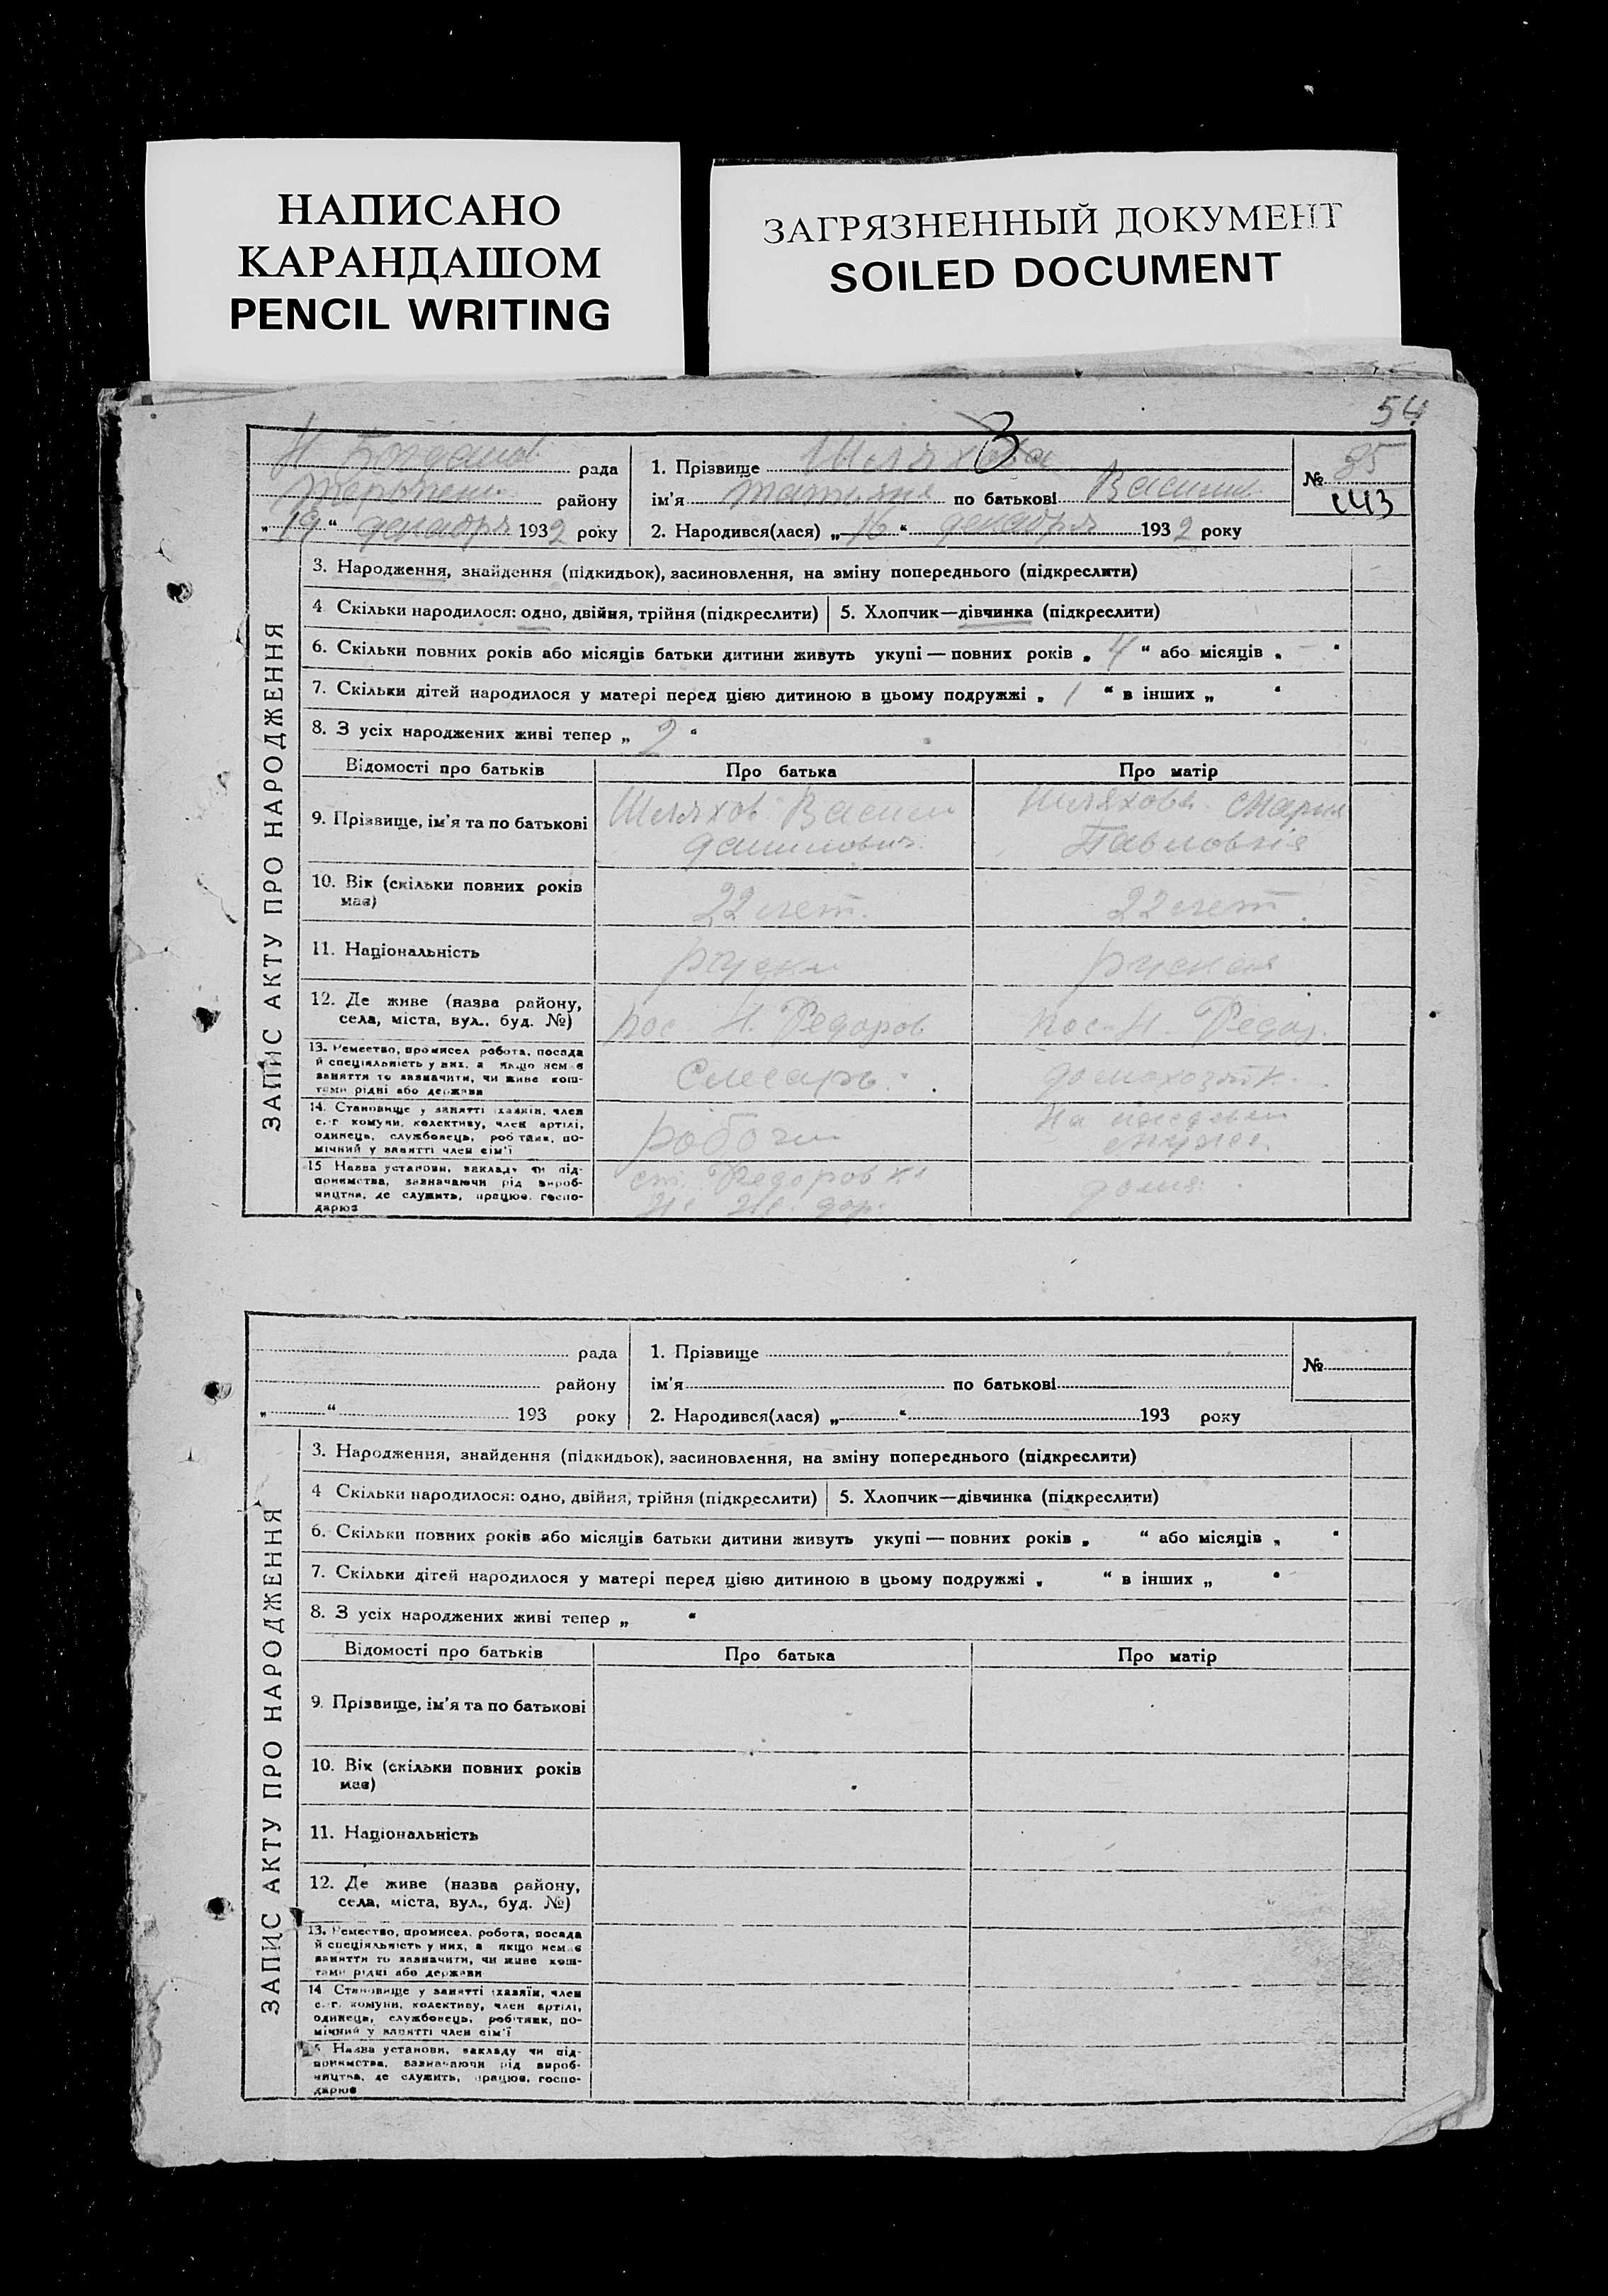 НАПИСАНО
КАРАНДАШОМ
PENCIL WRITING
ЗАГРЯЗНЕННЫЙ ДОКУМЕНТ
SOILED DOCUMENT
54
Н Богданов рада
району
„ 19 “ декабря 1932 року
1. Прізвище Шляхова
ім'я Татьяна по батькові Васил
2. Народився(лася) „ 16 “ декабря 1932 року
№ 85
143
ЗАПИС АКТУ ПРО НАРОДЖЕННЯ
3. Народження, знайдення (підкидьок), засиновлення, на зміну попереднього (підкреслити)
4 Скільки народилося: одно, двійня, трійня (підкреслити) 5. Хлопчик—дівчинка (підкреслити)
6. Скільки повних років або місяців батьки дитини живуть укупі — повних років „ 4 “ або місяців „ - “
7. Скільки дітей народилося у матері перед цією дитиною в цьому подружжі „ 1 “ в інших „ “
8. З усіх народжених живі тепер „ 2 “
Відомості про батьків Про батька Про матір
9. Прізвище, ім'я та по батькові
Шляхов Васили
Данилович
Шляхова Мария
Павловня
10. Вік (скільки повних років
має)
22 лет.
22 лет.
11. Національність
руски
руская
12. Де живе (назва району,
села, міста, вул., буд. №)
пос Н. Федоров
пос-Н-Федор.
13. Ремество, промисел робота, посада
й спеціяльність у них, а якщо немає
заняття то зазначити, чи живе кош-
тами рідні або держави
Слесарь.
домохозяйк.
14. Становище у занятті (хазяїн, член
с.-г комуни, колективу, член артілі,
одинець, службовець, робітник, по-
мічний у занятті член сім'ї
робочи
мужа.
15 Назва установи, закладу чи під-
приємства, зазначаючи рід вироб-
ництва, де служить, працює, госпо-
дарює
ст. Федоровка
дор.
дома.
рада
району
„ “ 193 року
1. Прізвище
ім'я по батькові
2. Народився(лася) „ “ 193 року
№
ЗАПИС АКТУ ПРО НАРОДЖЕННЯ
3. Народження, знайдення (підкидьок), засиновлення, на зміну попереднього (підкреслити)
4 Скільки народилося: одно, двійня, трійня (підкреслити) 5. Хлопчик—дівчинка (підкреслити)
6. Скільки повних років або місяців батьки дитини живуть укупі — повних років „ “ або місяців „ “
7. Скільки дітей народилося у матері перед цією дитиною в цьому подружжі „ “ в інших „ “
8. З усіх народжених живі тепер „ “
Відомості про батьків Про батька Про матір
9. Прізвище, ім'я та по батькові
10. Вік (скільки повних років
має)
11. Національність
12. Де живе (назва району,
села, міста, вул., буд. №)
13. Ремество, промисел, робота, посада
й спеціяльність у них, а якщо немає
заняття то зазначити, чи живе кош-
тами рідні або держави
14 Становище у занятті (хазяїн, член
с.-г. комуни, колективу, член артілі,
одинець, службовець, робітник, по-
мічний у занятті член сім'ї
15 Назва установи, закладу чи під-
приємства, зазначаючи рід вироб-
ництва, де служить, працює, госпо-
дарює